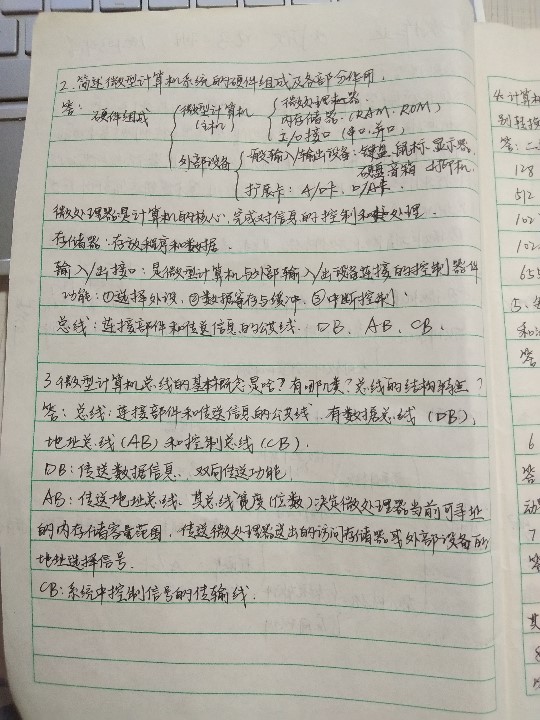 2.简述微型计算机系统的硬件组成及各部分作用.
答: 硬件组成 微型计算机(主机) 微处理器.
内存储器.(RAM、ROM)
I/O接口(串口、并口)
外部设备 一般输入/输出设备: 键盘、鼠标、显示器、
硬盘、音箱、打印机
扩展卡: A/D卡、D/A卡.
微处理器是计算机的核心,完成对信息的控制和处理.
存储器: 存放程序和数据.
输入/出接口: 是微型计算机与外部输入/出设备连接的控制器件
功能: ①选择外设. ②数据寄存与缓冲. ③中断控制
总线: 连接部件和传送信息的公共线. DB、AB、CB.
3.微型计算机总线的基本概念是啥?有哪几类?总线的结构特点?
答: 总线: 连接部件和传送信息的公共线. 有数据总线(DB),
地址总线(AB)和控制总线(CB).
DB: 传送数据信息. 双向传送功能
AB: 传送地址总线. 其总线宽度(位数)决定微处理器当前可寻址
的内存储容量范围. 传送微处理器送出的访问存储器或外部设备的
地址选择信号.
CB: 系统中控制信号的传输线.
4.计算机
答: 二
128
512
102
102
655
5.
和
答
6
答
动
7
答
其
8